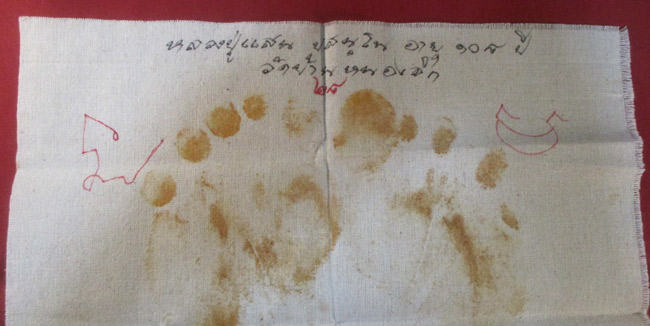 หลวงปู่แสน ปสนฺโน อายุ ๑๐๘ ปี
วัดบ้านหนองจิก